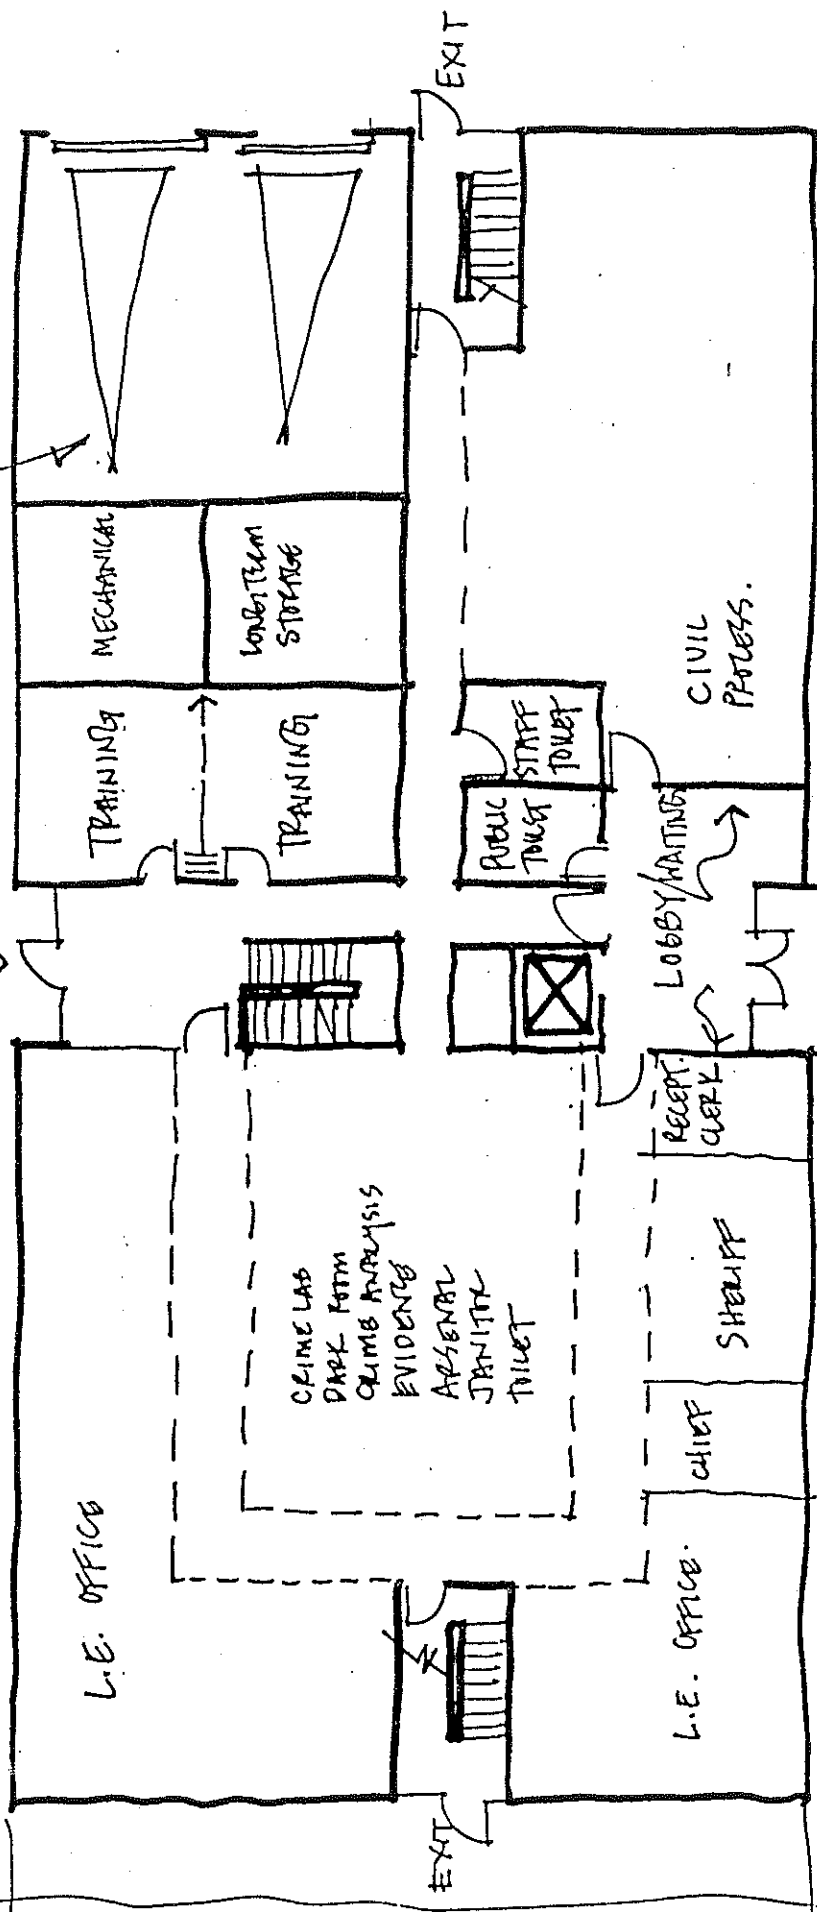 EXIT
MECHANICAL
LONG TERM
STORAGE
TRAINING
TRAINING
STAFF
TOILET
PUBLIC
TOILET
CIVIL
PROCESS.
LOBBY/WAITING
RECEPT.
CLERK
CRIME LAB
DARK ROOM
CRIME ANALYSIS
EVIDENCE
ARSENAL
JANITOR
TOILET
SHERIFF
CHIEF
L.E. OFFICE
L.E. OFFICE.
EXIT